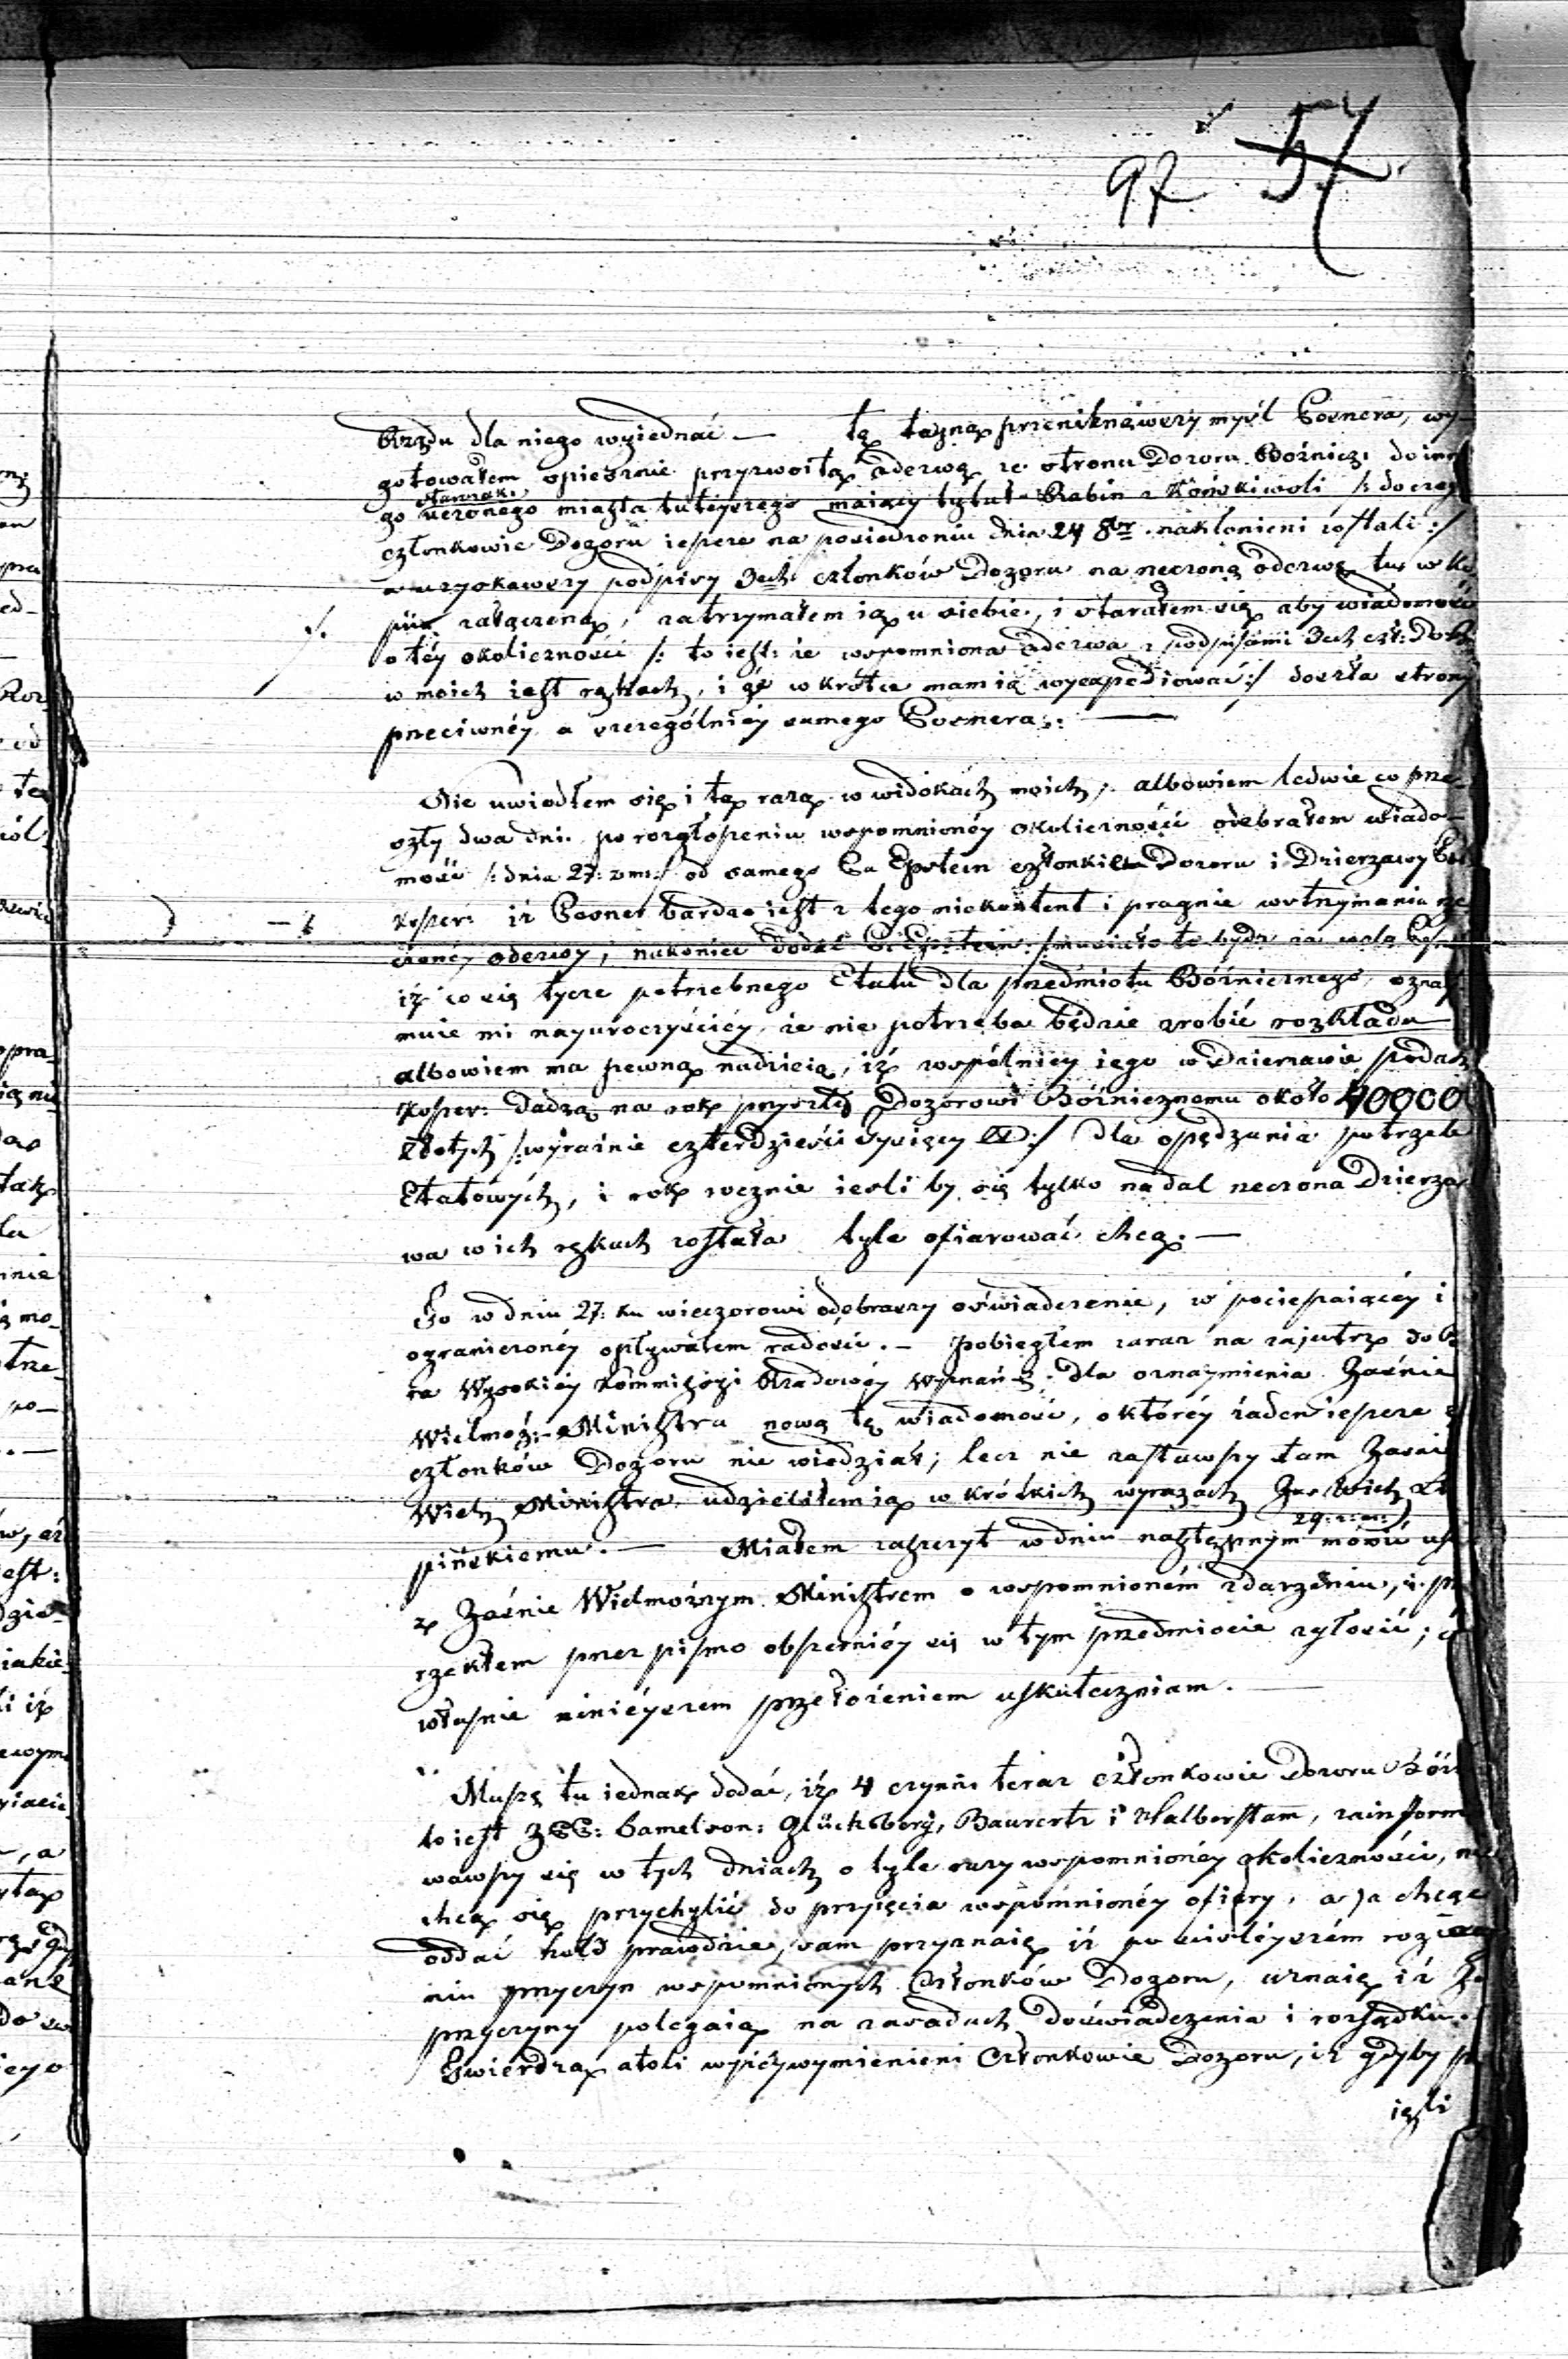 97 57
Rządu dla niego wyiednać — tę tayną przeniknąwszy myśl Posnera, wy-
gotowałem spiesznie przyzwoitą odezwę ze strony Dozoru Bóżnicz: do inne
starozak:
go uczonego miasta tuteyszego maiący tytuł Rabin z Końskiwoli /: do czego
członkowie Dozoru ieszcze na posiedzeniu dnia 24 8br nakłonieni zostali :/
a uzyskawszy podpisy 3ech członków Dozoru na rzeczoną odezwę tu w ko
pii załączoną, zatrzymałem ią u siebie, i starałem się aby wiadomość
o téy okoliczności /: to iest: że wspomniona odezwa z podpisami 3ech czł: Doz:
w moich iest rękach, i że wkrótce mam ią wyexpediować :/ doszła strony
przeciwnéy a szczególniéy samego Posnera. —
Nie uwiodłem się i tą razą w widokach moich, albowiem ledwie co prze-
szły dwa dni po rozgłoszeniu wspomnionéy okoliczności odebrałem wiado-
mość /: dnia 27: zm: / od samego Pa Epstein członka Dozoru i Dzierzawy
Koszer: iż Posner bardzo iest z tego niekontent i pragnie wstrzymania rze
czonéy odezwy; nakoniec dodał P. Epstein /: musiało to bydź za wolą Posn
iż co się tycze potrzebnego Etatu dla przedmiotu Bóżnicznego, oznay
muie mi nayuroczyściéy że nie potrzeba będzie zrobić rozkładu
albowiem ma pewną nadzieię, iż wspólnicy iego w Dzierzawie podat
Koszer: dadzą na rok przyszły Dozorowi Bóżnicznemu około 40000
złotych /: wyraźnie czterdzieści tysięcy :/ dla opędzania potrzeb
Etatowych, i rok rocznie iesli by się tylko nadal rzeczona Dzierza
wa w ich rękach została tyle ofiarować chcą. —
Ja w dniu 27: ku wieczorowi odebrawszy oświadczenie, w pocieszaiącéy i
ograniczonéy opływałem radości. — Pobiegłem zaraz na zajutrz do B
ra Wysokiéy Kommissyi Rządowéy Wyznań dla oznaymienia Jaśnie
Wielmoż: Ministra nową tę wiadomość, o któréy żaden ieszcze z
członków Dozoru nie wiedział; lecz nie zastawszy tam Jaśnie
Wielm Ministra udzieliłem ią w krótkich wyrazach
pińskiemu. — Miałem zaszczyt w dniu następnym 29: z: m: mówić
z Jaśnie Wielmożnym Ministrem o wspomnioném zdarzeniu, i p
rzekłem przez pismo obszerniéy się w tym przedmiocie zgłosić; c
właśnie ninieyszem przełożeniem uskuteczniam. —
Muszę tu iednak dodać, iż 4 czynni teraz członkowie Dozoru Bóż
to iest Samelson: Glücksberg, Baurertz i Halberstam, zainform
wawszy się w tych dniach o tyle razy wspomnionéy okoliczności, nie
chcą się przychylić do przyięcia wspomnionéy ofiary, a ja chcąc
oddać hołd prawdzie, sam przyznaię iż po ściśleyszém rozwa
niu przyczyn wspomnionych Członków Dozoru, uznaię iż
przyczyny polegaią na zasadach doświadczenia i rozsądku.
Twierdzą atoli wyżéywymienieni Członkowie Dozoru, iż gdyby p
ięli